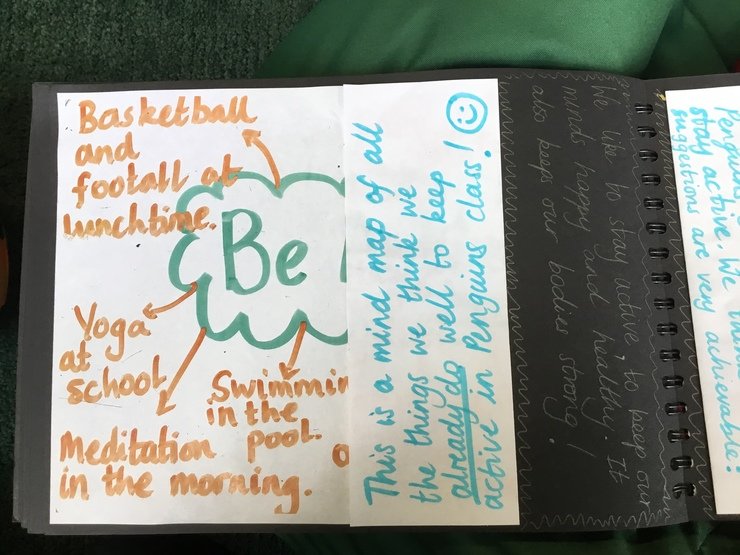 Basketball
and
footall at
lunchtime.
Be
Yoga
at
school
Swimmin
in the
pool.
Meditation
in the morning.
This is a mind map of all
the things we think we
already do well to keep
active in Penguins class!
We like to stay active to keep our
minds happy and healthy! It
also keeps our bodies strong!
stay active. We
suggestions are very achievable!